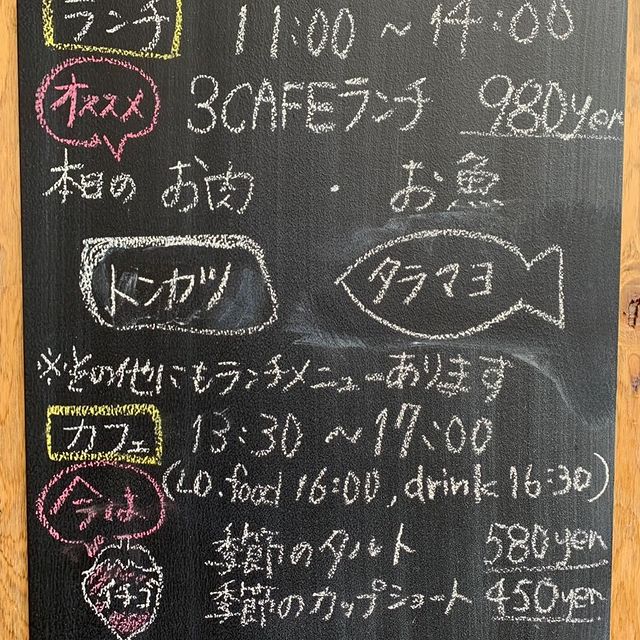 ランチ 11:00 ~ 14:00
オススメ 3CAFEランチ 980yen
本日の お肉 ・ お魚
トンカツ タラマヨ
※その他にもランチメニューあります
カフェ 13:30 ~ 17:00
(L.O. food 16:00, drink 16:30)
今は
季節のタルト 580yen
イチゴ 季節のカップショート 450yen